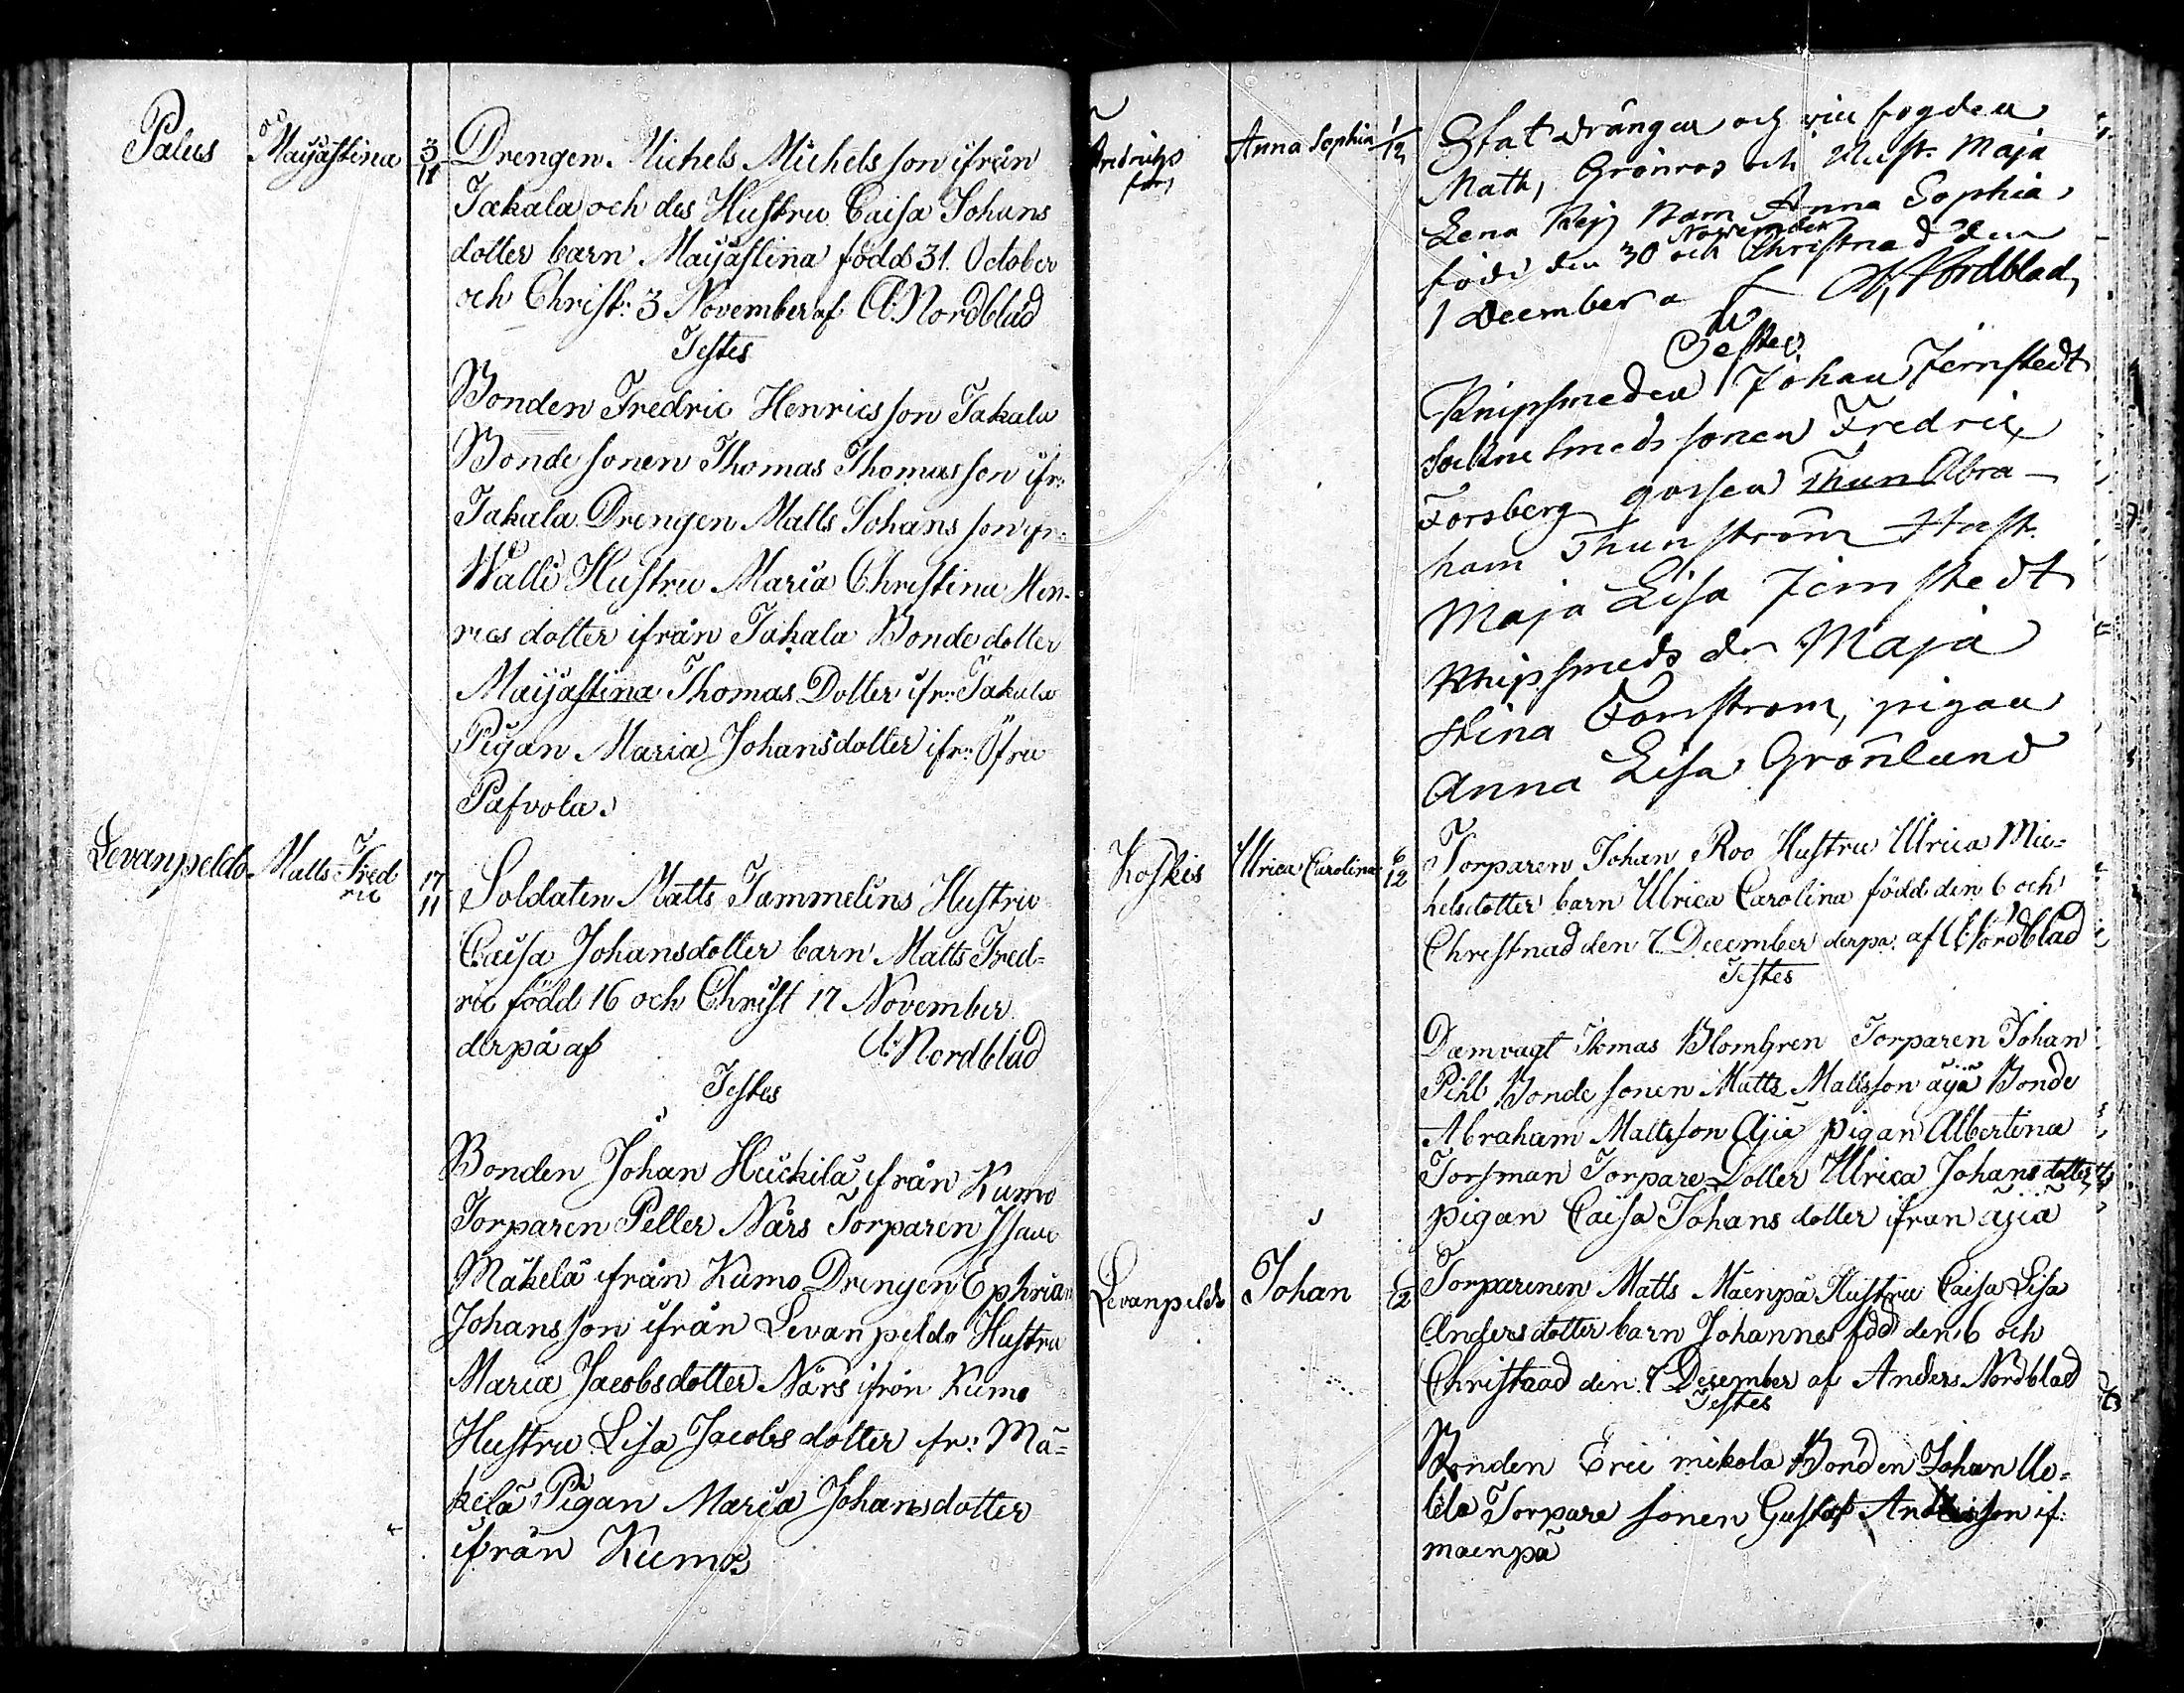 Palus Maijastina 3/11 Drengen Michels Michels son ifrån
Takala och des Hustru Caisa Johans
dotter barn Maijastina född 31. October
och Christ: 3 November af A: Nordblad
Testes
Bonden Fredric Henrics son Takala
Bonde sonen Thomas Thomas son ifr:
Takala Drengen Matts Johans son ifr:
Walli Hustru Maria Christina Hen-
rics dotter ifrån Takala Bonde dotter
Maijastina Thomas Dotter ifr: Takala
Pigan Maria Johansdotter ifr: Öfra
Pafvola.
Levanpeldo Matts Fred
ric 17/11 Soldaten Matts Tammelins Hustru
Caisa Johansdotter barn Matts Fred=
ric född 16 och Christ 17 November
derpå af A: Nordblad
Testes
Bonden Johan Huckila ifrån Kumo
Torparen Petter Närs Torparen Isaac
Mäkelä ifrån Kumo Drengen Ephriam
Johansson ifrån Levanpeldo Hustru
Maria Jacobsdotter Närs ifrån Kumo
Hustru Lisa Jacobs dotter ifr: Mä=
kelä Pigan Maria Johansdotter
ifrån Kumo
Fredrichs
fors Anna Sophia 1/12 Stat drängen och fogden
Math, Grönros och Hust. Maja
Lena barn Anna Sophia,
född den 30 November och Christnad den
1 December af A, Nordblad,
Testes
Knipsmeden Johan Jernstedt
Sockne smeds sonen Fredric
Forsberg gossen Thun Abra-
ham Thunström Hust.
Maja Lisa Jernstedt
Knipsmeds dr Maja
Stina Fonström, pigan
Anna Lisa Grönlund
Koskis Ulrica Carolina 6/12 Torparen Johan Roo Hustru Ulrica Mic=
helsdotter barn Ulrica Carolina född den 6 och
Christnad den 7. December derpå af A Nordblad
Testes
Damvagt Tomas Blomgren Torparen Johan
Pihl Bonde sonen Matts Mattsson äijä Bonde
Abraham Mattsson Äjiä pigan Albertina
Torsman Torpare Dotter Ulrica Johans dotter
pigan Caisa Johans dotter ifrån äjiä
Levanpeldo Johan 6/12 Torparenen Matts Mäenpä Hustru Caisa Lisa
Anders dotter barn Johannes född den 6 och
Christnad den 7 Desember af Anders Nordblad
Testes
Bonden Eric mikola Bonden Johan Ue=
lela Torpare sonen Gustaf Andersson if:
mäenpä